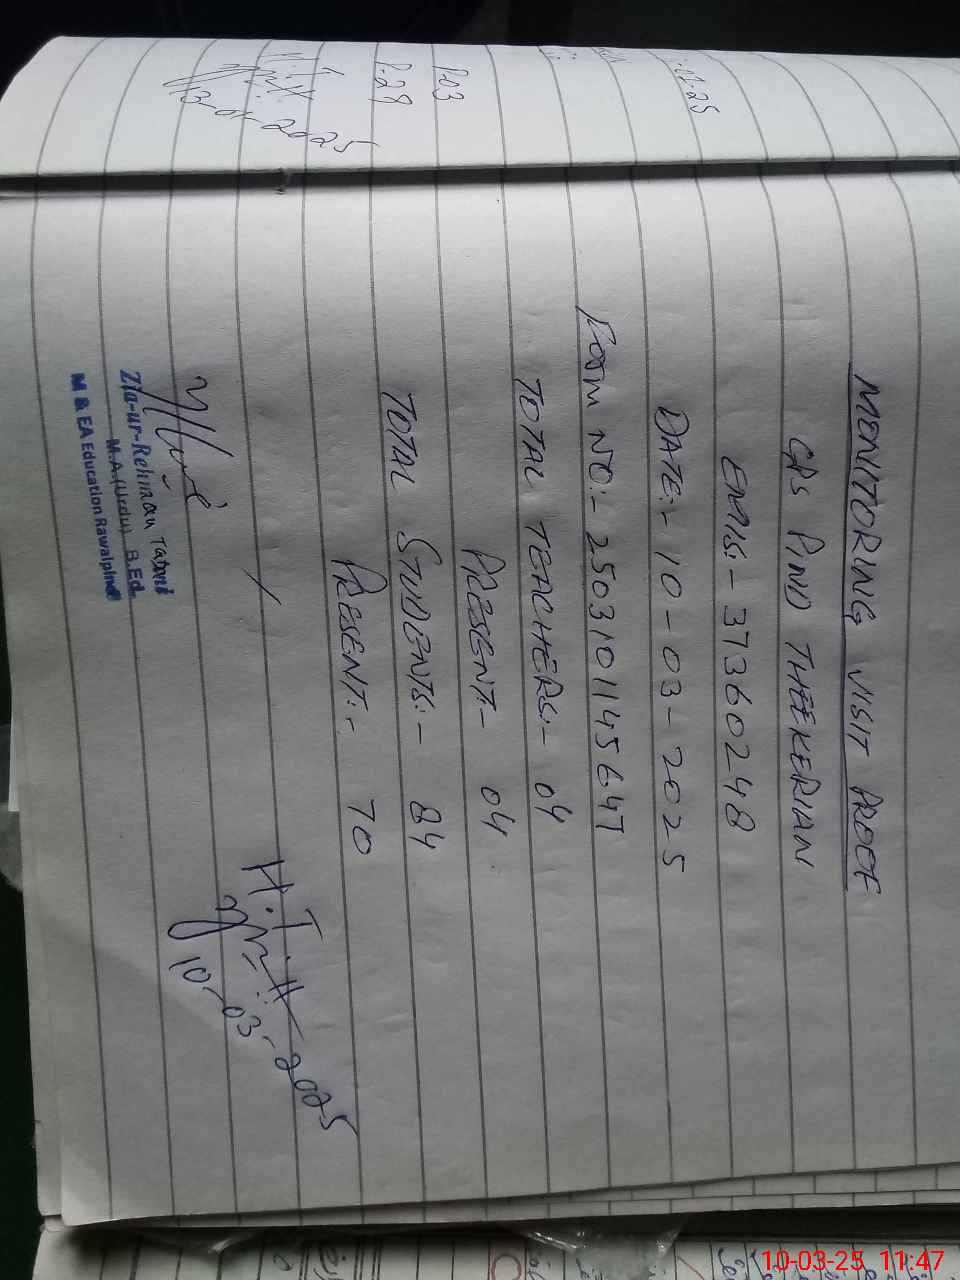 MENITORING VISIT PROOF
GPS PIND THEEKERIAN
EMIS:- 37360248
DATE:- 10-03-2025
FORM NO:- 2503101145647
TOTAL TEACHERS:- 04
PRESENT:- 04
TOTAL STUDENTS:- 84
PRESENT:- 70
H.T
10-03-2025
Zia-ur-Rehman
M.A.(Urdu) B.Ed
M & EA Education Rawalpindi
P.03
P.28
H.T
13-01-2025
10-03-25 11:47